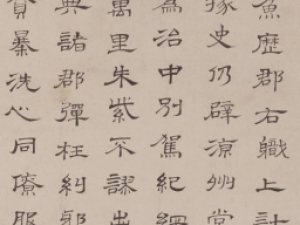 魚歷郡右軄上計
掾史仍辟涼州常
為治中別駕紀綱
萬里朱紫不謬出
典諸郡彈枉糾邪
貪暴洗心同僚服